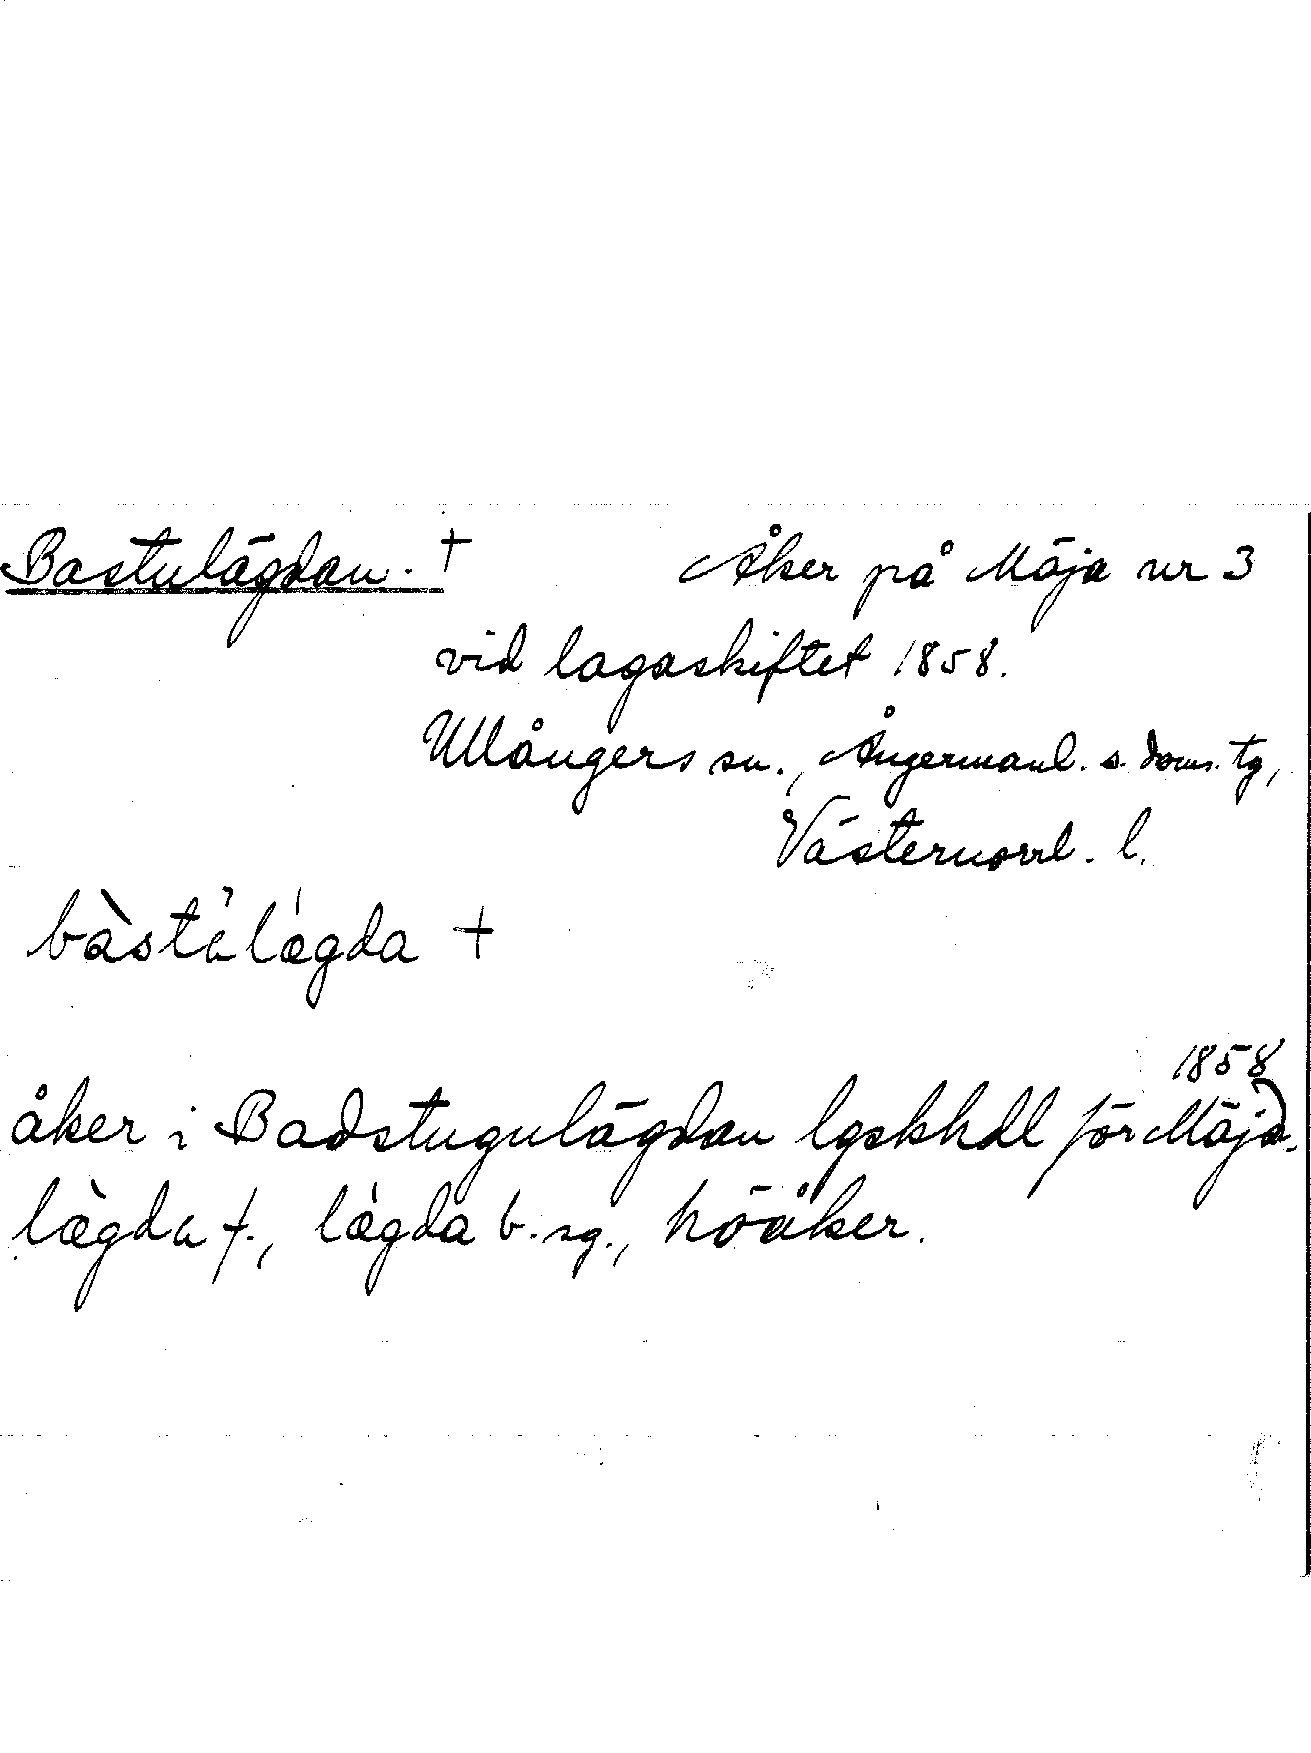 Bastulägdan. + Åker på Mäja nr 3
vid lagaskiftet 1858.
Ullångers sn., Ångermanl. s. doms. tg,
Västernorrl. l.
bàstu̇̀lǽgda +
1858
åker i Badstugulägdan lgskhdl för Mäja.
lægda f., lægda b. sg., höåker.